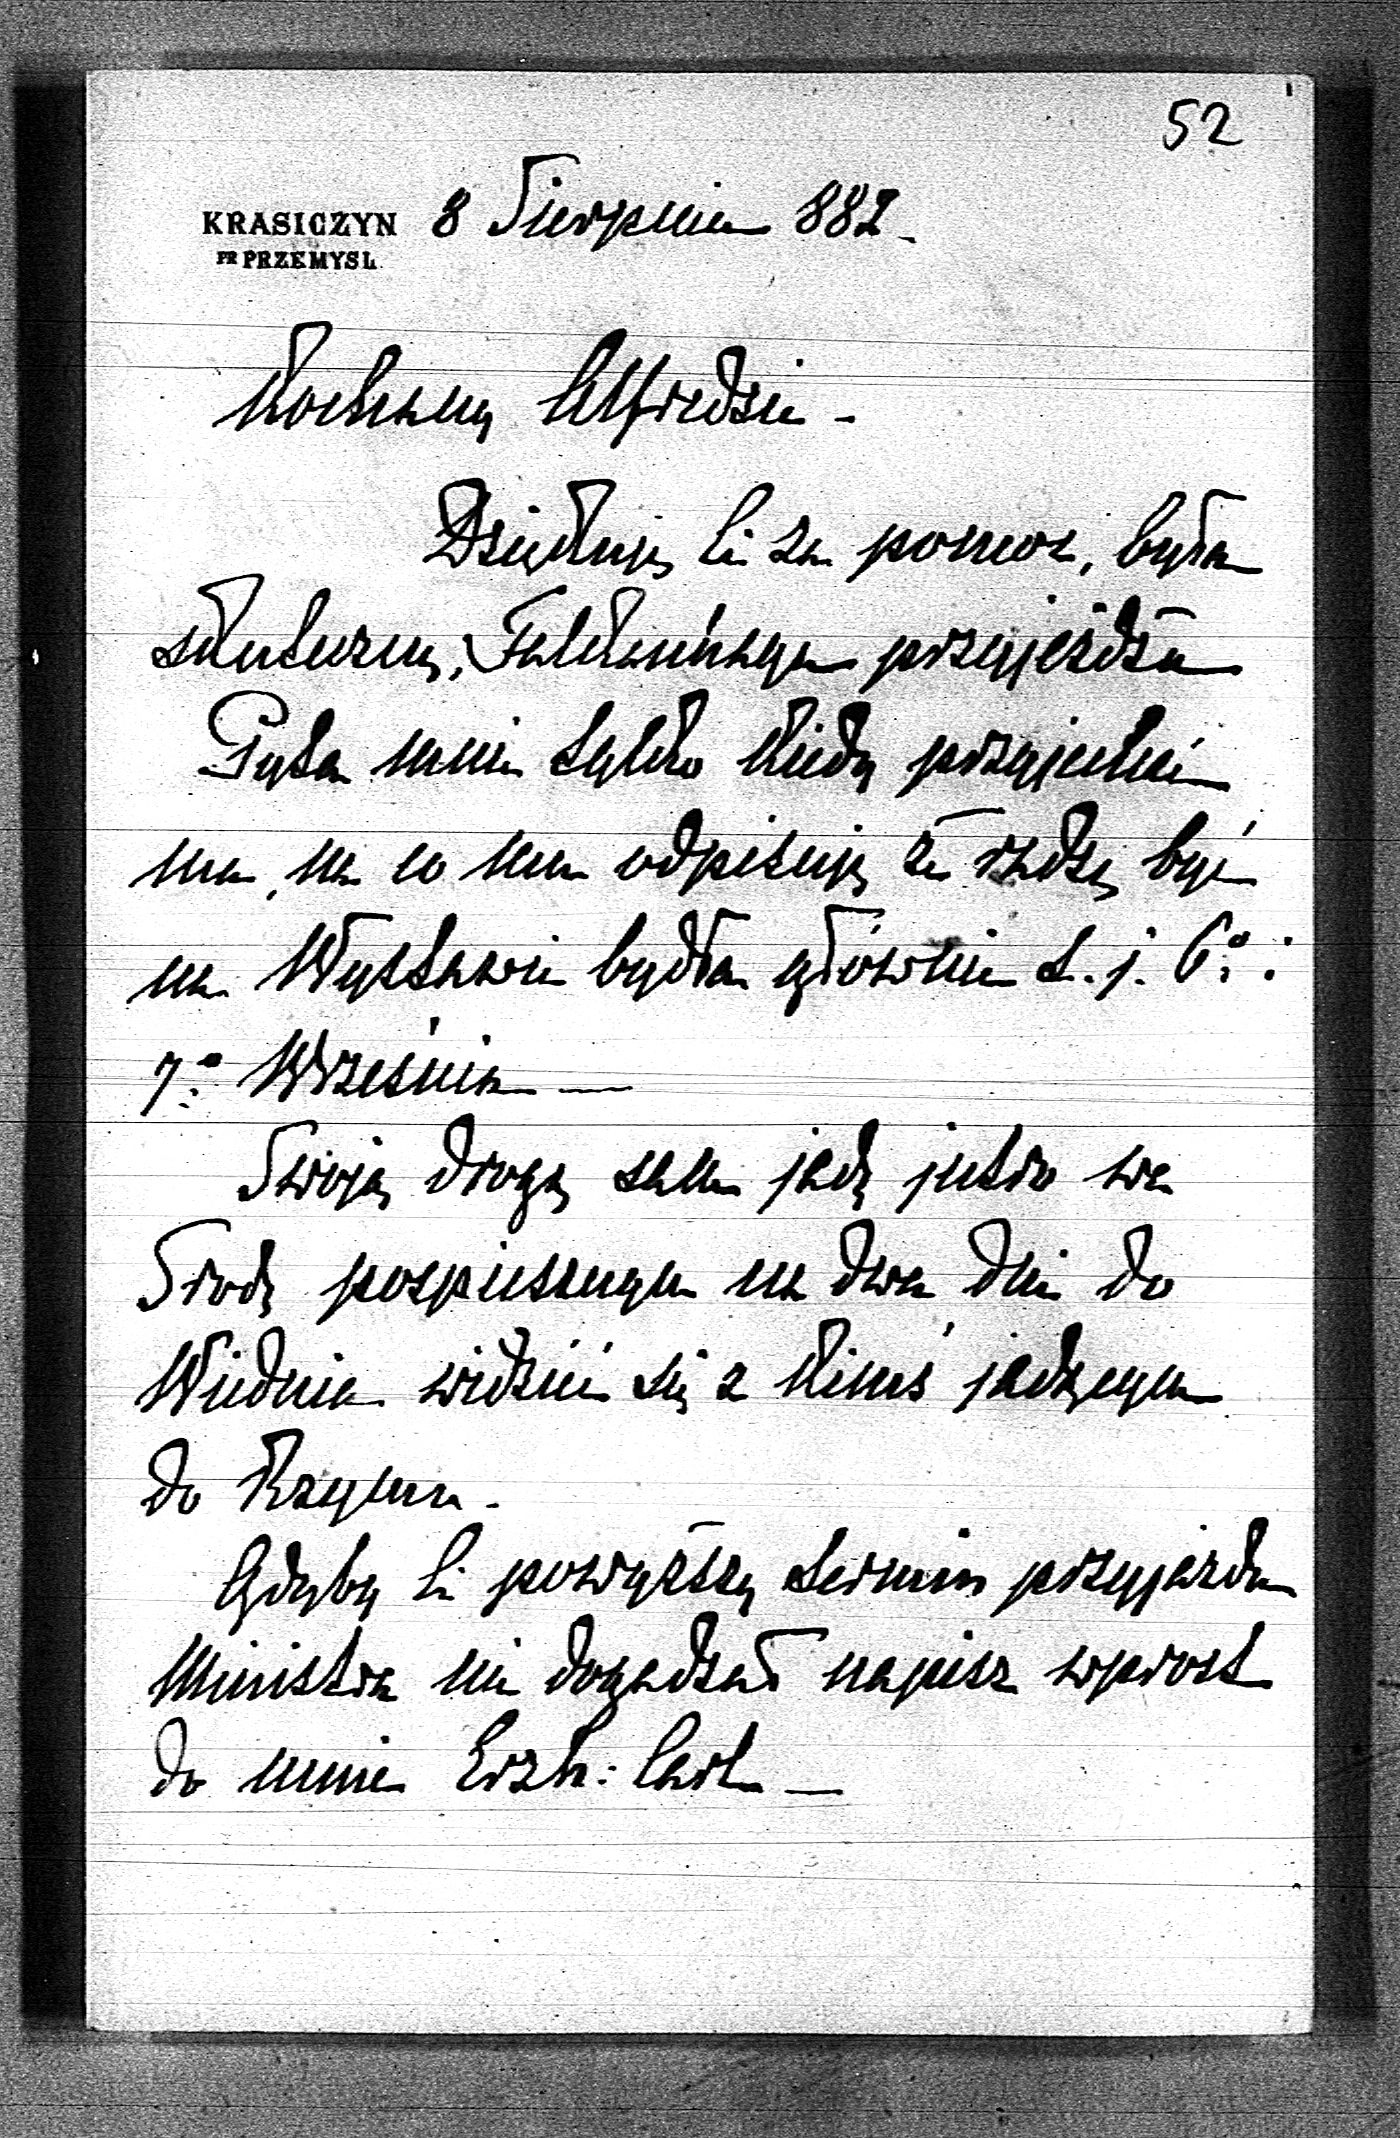 52
KRASICZYN 8 Sierpnia 882.
PR PRZEMYSL.
Kochany Alfredzie -
Dziękuję Ci za pomoc, była
skuteczną, Falkenhayn przyjeżdża
Pyta mnie tylko kiedy przyjechać
ma, na co mu odpisuję że radzę być
na Wystawie bydła głównie t. j. 6º:
7º: Września —
Swoją drogą sam jadę jutro we
Srodę pospiesznym na dwa dni do
Wiednia widzieć się z kimś jadącym
do Rzymu.
Gdyby Ci powyższy termin przyjazdu
Ministra nie dogadzał napisz wprost
do mnie Erzh: Carl —